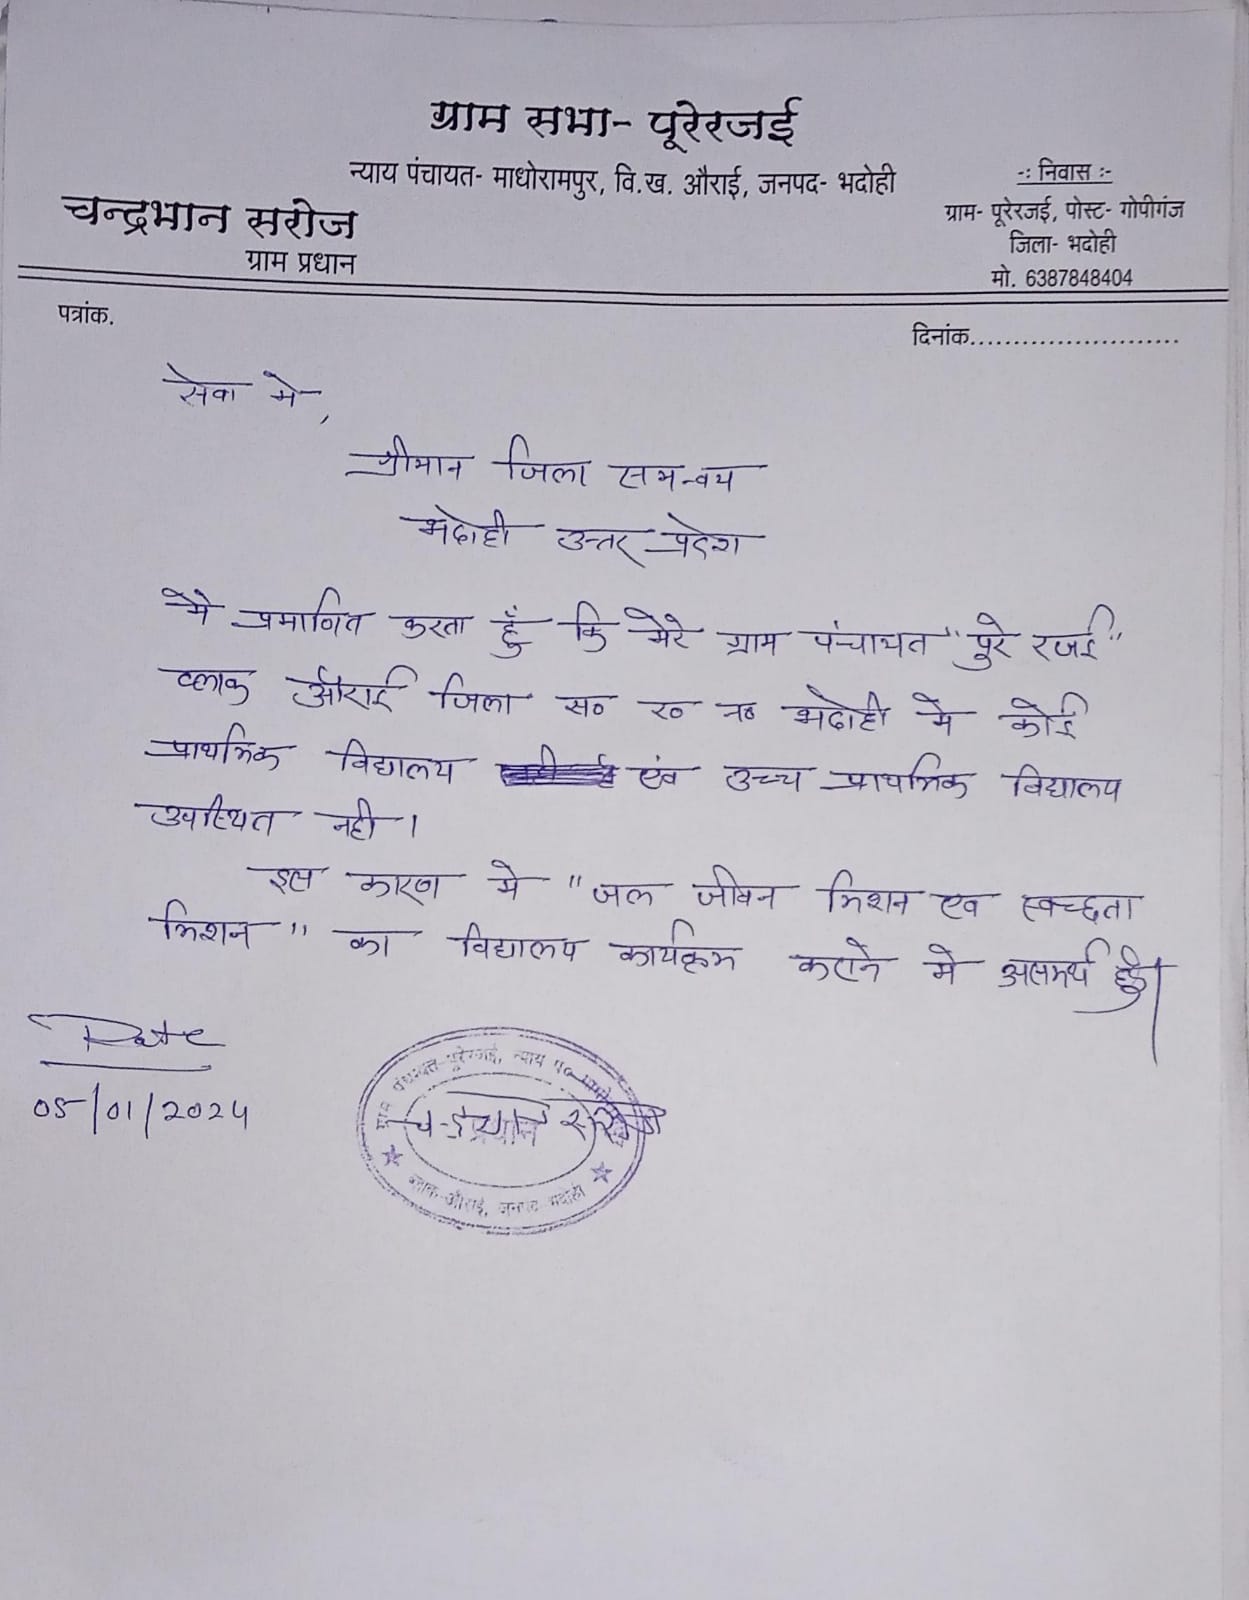 ग्राम सभा- पूरेरजई
न्याय पंचायत- माधोरामपुर, वि.ख. औराई, जनपद- भदोही
चन्द्रभान सरोज
ग्राम प्रधान
-: निवास :-
ग्राम- पूरेरजई, पोस्ट- गोपीगंज
जिला- भदोही
मो. 6387848404
पत्रांक.
दिनांक........................
सेवा मे,
श्रीमान जिला समन्वय
भदोही उत्तर प्रदेश
मै प्रमाणित करता हूँ कि मेरे ग्राम पंचायत "पुरे रजई"
ब्लाक औराई जिला स० र० न० भदोही मे कोई
प्राथमिक विद्यालय एंव उच्च प्राथमिक विद्यालय
उपस्थित नही।
इस कारण मे "जल जीवन मिशन एव स्वच्छता
मिशन" का विद्यालय कार्यक्रम कराने मे असमर्थ हुँ।
Date
05/01/2024
ग्राम पंचायत-पूरेरजई, न्याय पं०
चन्द्रभान सरोज
ब्लाक-औराई, जनपद-भदोही